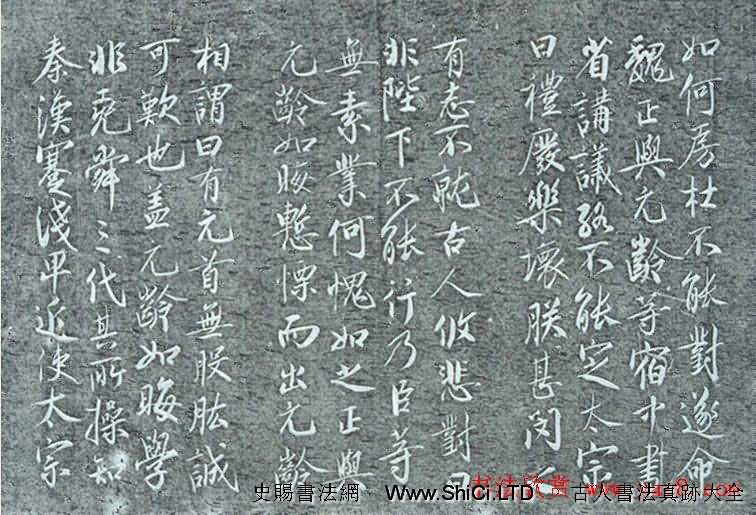 如何房杜不能對遂命
魏正與元齡等宿中書
省講議終不能定太宗
曰禮廢樂壞朕甚閔
有志不就古人攸悲對曰
非陛下不能行乃臣等
無素業何愧如之正與
元齡如晦慙慄而出元齡
相謂曰有元首無股肱誠
可歎也盖元齡如晦學
非堯舜三代其所操知
秦漢蹇淺卑近使太宗
书法欣赏
史賜書法網 Www.ShiCi.LTD 古人書法真跡大全